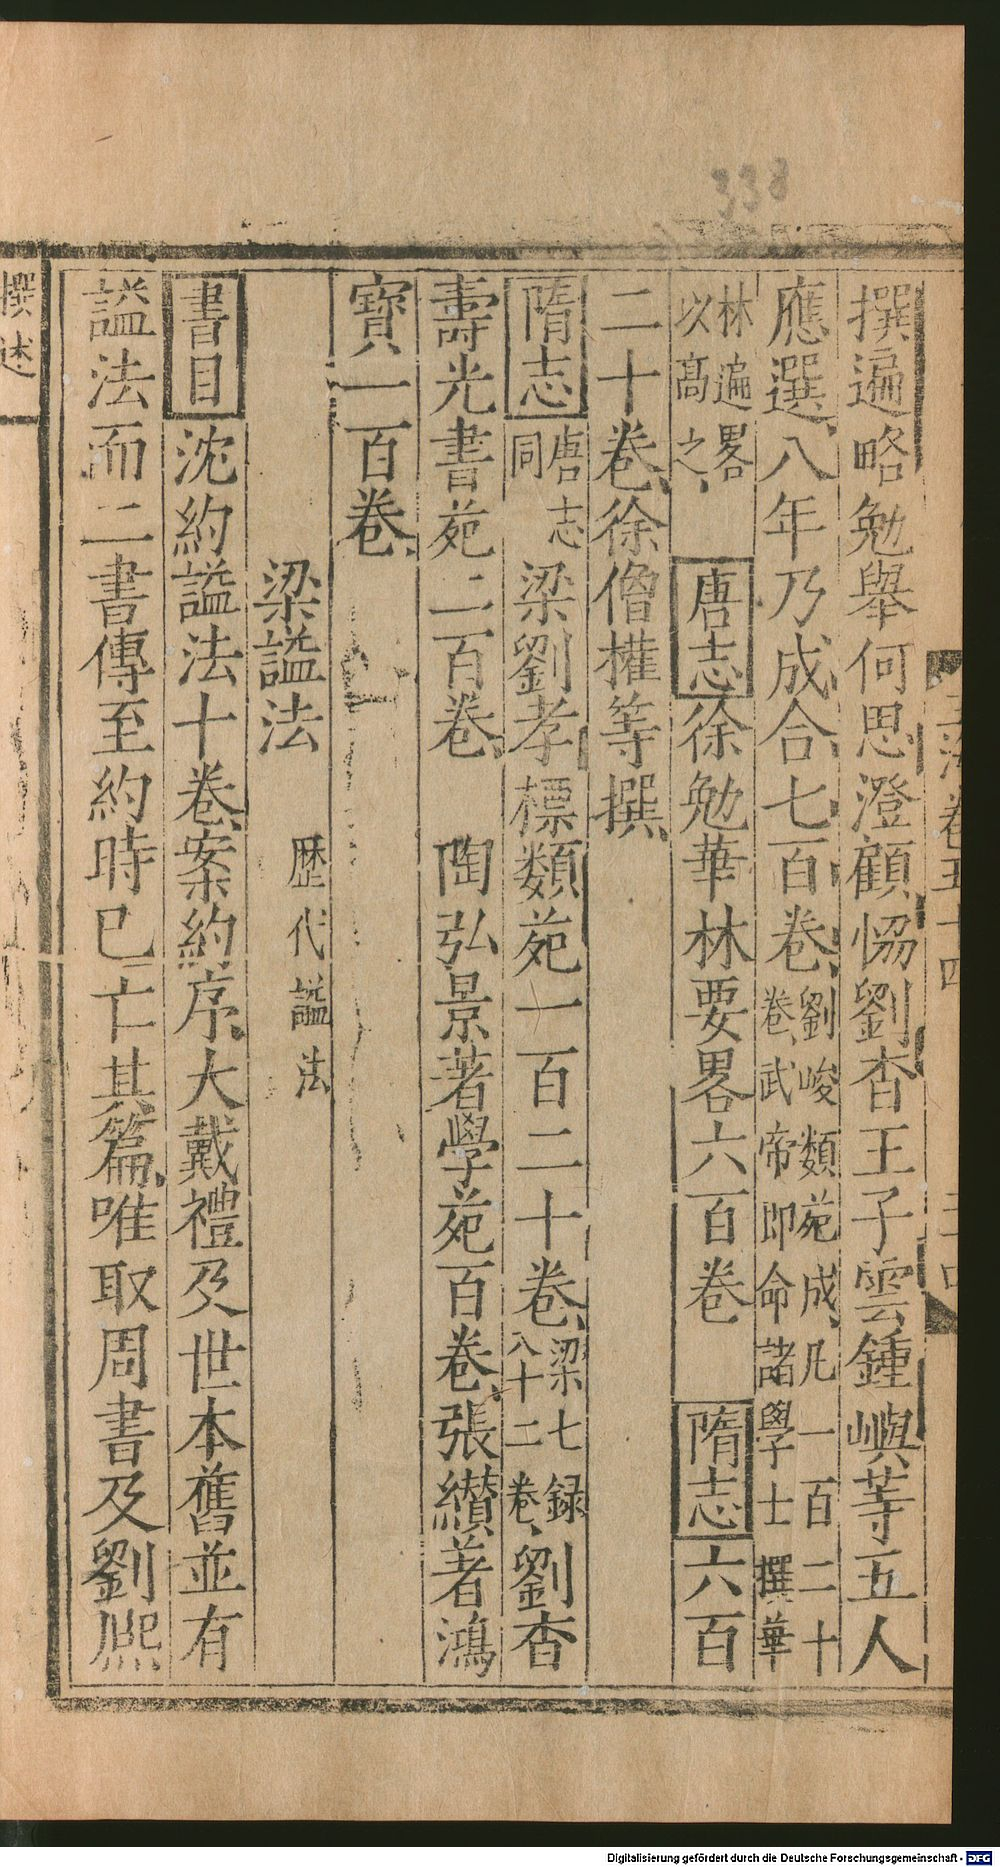 338
撰遍略勉舉何思澄顧協劉杳王子雲鍾嶼等五人
應選八年乃成合七百卷劉峻類苑成凡一百二十
卷武帝即命諸學士撰華
林遍畧
以髙之唐志徐勉華林要畧六百卷 隋志六百
二十卷徐僧權等撰
隋志唐志
同梁劉孝標類苑一百二十卷梁七録
八十二卷劉杳
壽光書苑二百卷 陶弘景著學苑百卷張纘著鴻
寳一百卷
梁謚法 歴代謚法
書目沈約謚法十卷案約序大戴禮及世本舊並有
謚法而二書傳至約時已亡其篇唯取周書及劉熈
撰述
卷五十四
Digitalisierung gefördert durch die Deutsche Forschungsgemeinschaft - DFG